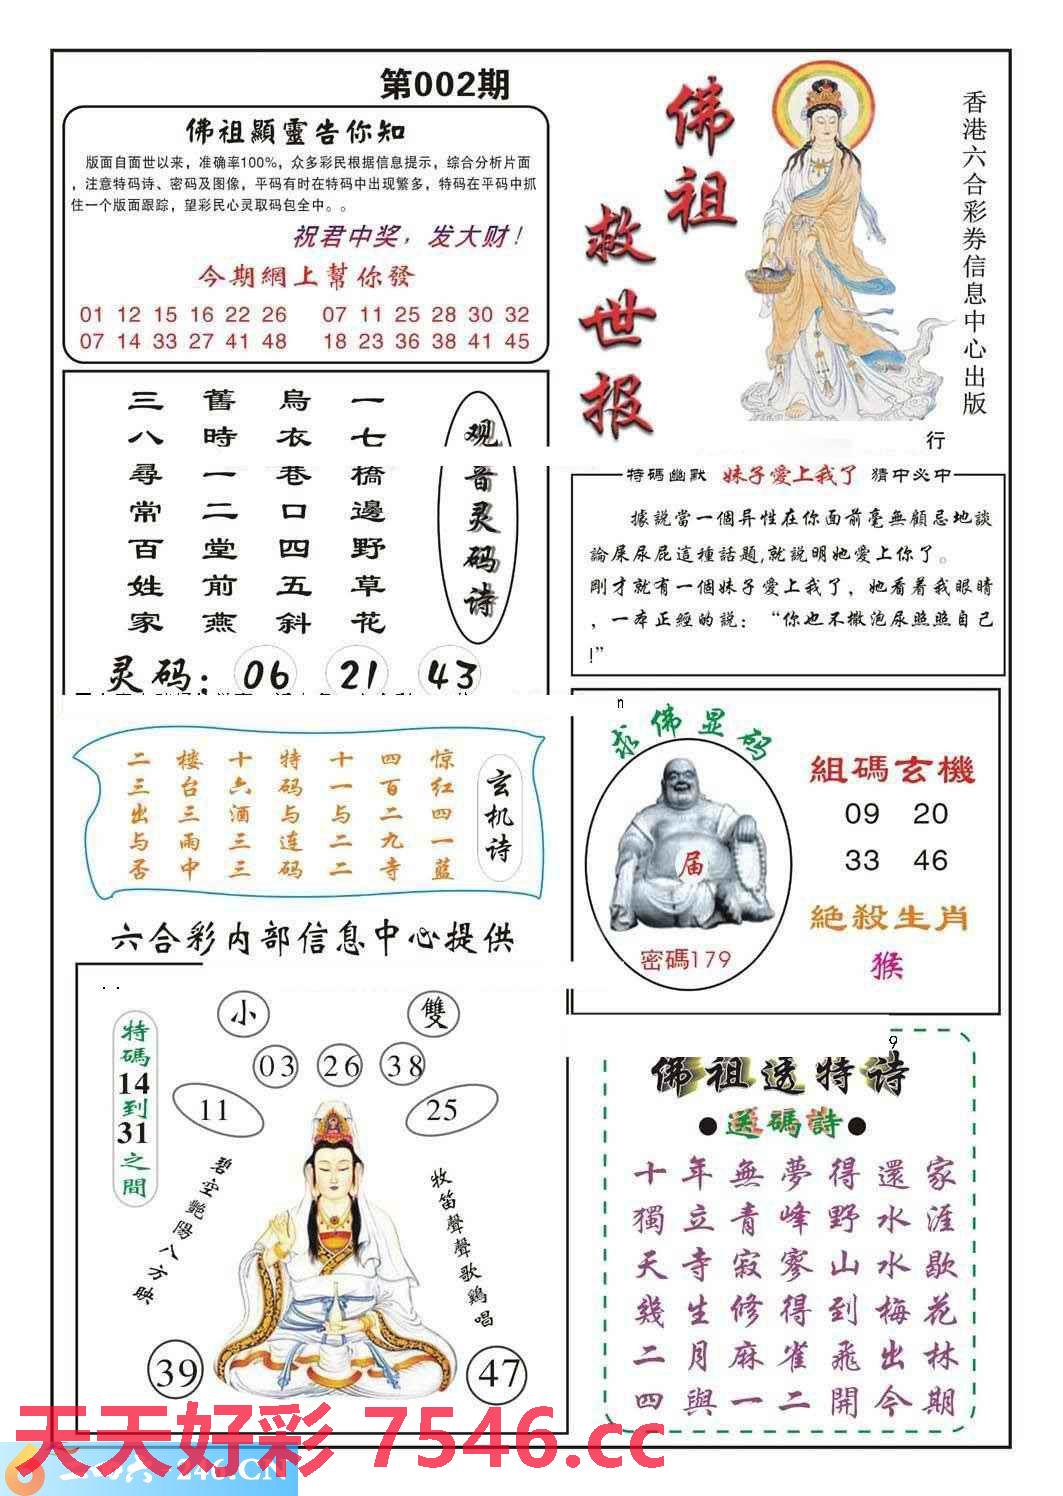 第002期
佛祖顯靈告你知
版面自面世以来，准确率100%，众多彩民根据信息提示，综合分析片面
，注意特码诗、密码及图像，平码有时在特码中出现繁多，特码在平码中抓
住一个版面跟踪，望彩民心灵取码包全中。。
祝君中奖，发大财！
今期網上幫你發
01 12 15 16 22 26 07 11 25 28 30 32
07 14 33 27 41 48 18 23 36 38 41 45
佛祖
救世报
香港六合彩券信息中心出版
行
观音灵码诗
一七橋邊野草花
烏衣巷口四五斜
舊時一二堂前燕
三八尋常百姓家
灵码：06 21 43
特碼幽默 妹子愛上我了 猜中必中
據說當一個异性在你面前毫無顧忌地談
論屎尿屁這種話題,就説明她愛上你了。
剛才就有一個妹子愛上我了，她看着我眼睛
，一本正經的説：“你也不撒泡尿照照自己
!”
n
玄机诗
惊红四一蓝
四百二九寺
十一与二二
特码与连码
十六酒三三
楼台三雨中
二三出与否
求佛显码
届
密碼179
組碼玄機
09 20
33 46
絕殺生肖
猴
六合彩内部信息中心提供
特碼14到31之間
小 雙
03 26 38
11 25
碧空艷陽八方映
牧笛聲聲歌鷄唱
39 47
9
佛祖透特诗
●送碼詩●
十年無夢得還家
獨立青峰野水涯
天寺寂寥山水歇
幾生修得到梅花
二月麻雀飛出林
四與一二開今期
天天好彩 7546.cc
246.CN